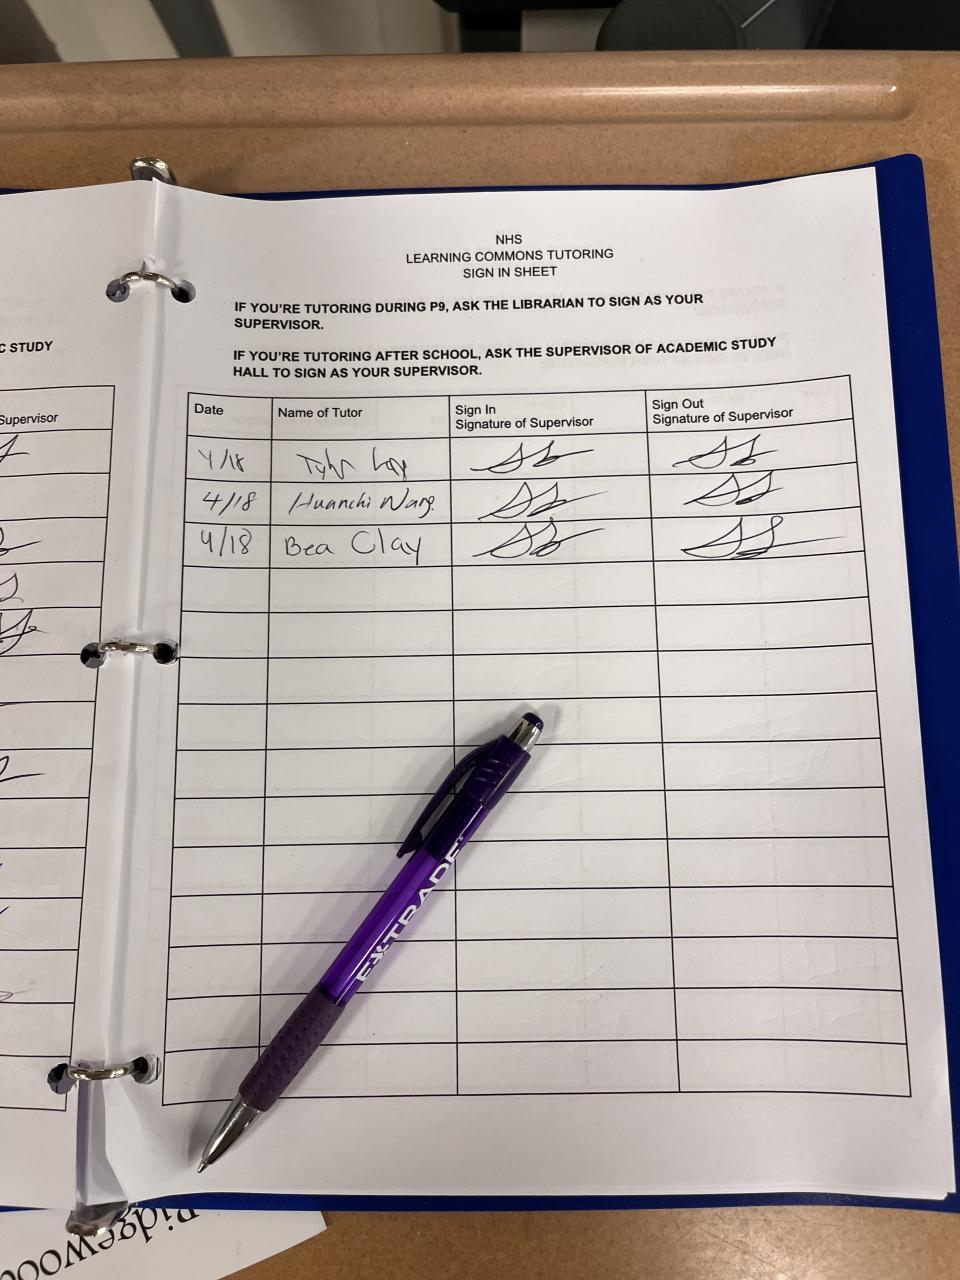 C STUDY
Supervisor
NHS
LEARNING COMMONS TUTORING
SIGN IN SHEET
IF YOU'RE TUTORING DURING P9, ASK THE LIBRARIAN TO SIGN AS YOUR
SUPERVISOR.
IF YOU'RE TUTORING AFTER SCHOOL, ASK THE SUPERVISOR OF ACADEMIC STUDY
HALL TO SIGN AS YOUR SUPERVISOR.
Date Name of Tutor Sign In Signature of Supervisor Sign Out Signature of Supervisor
4/18 Tyler
4/18 Huanchi Wang.
4/18 Bea Clay
EXTRADE
Ridgewood